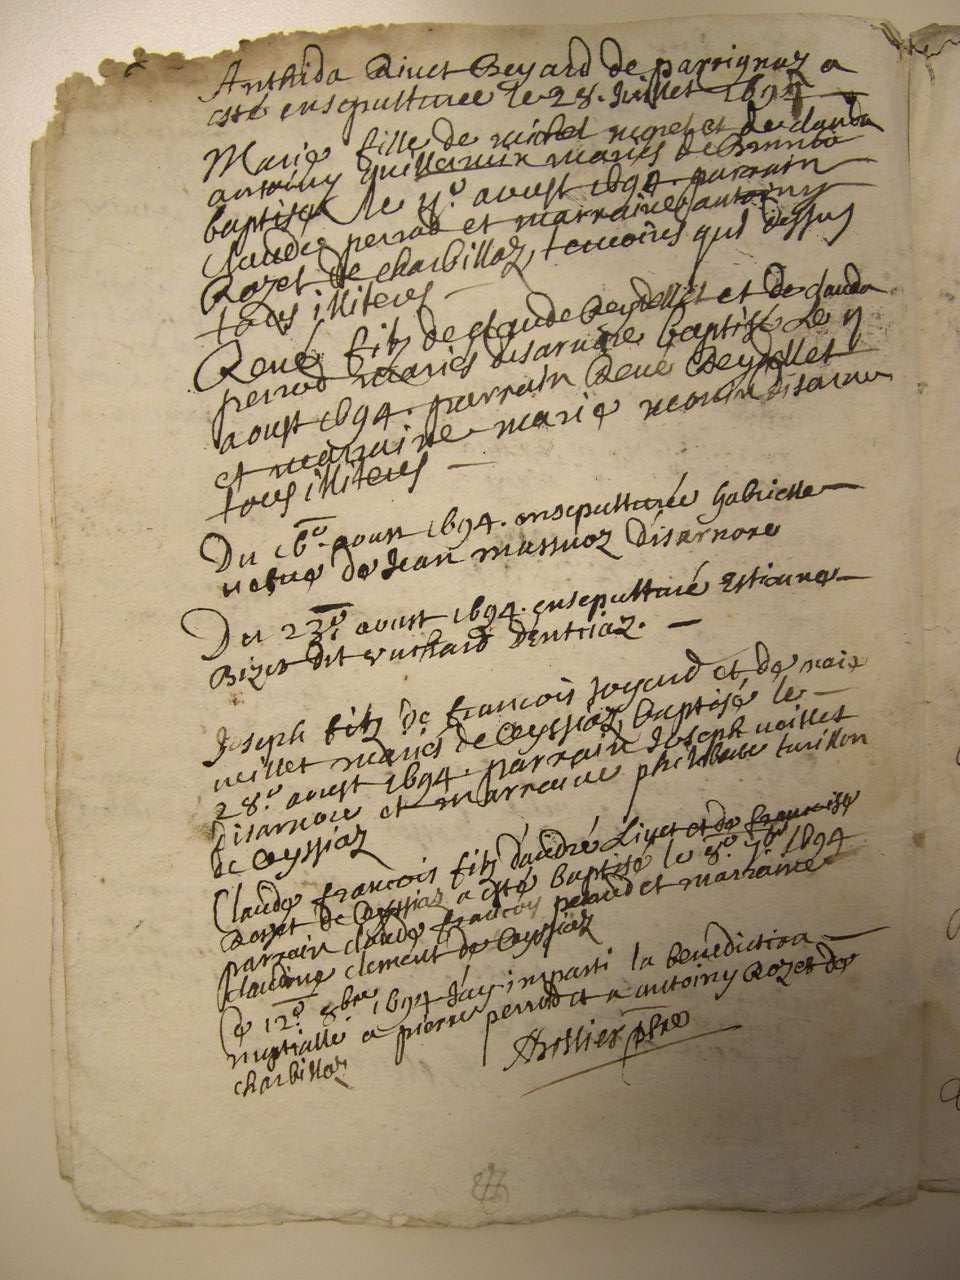 Anthida Rivet Beyard de parrignaz a
esté ensepulturée le 28. Juillet 1694
Marie fille de et de clauda
antoiny guillermin mariés de
baptisée le aoust 1694. parrain
Claude perrod et marraine antoiny
Rozet de charbillaz, temoins qui dessus
tous illiteres
René fils de claude Beydellet et de clauda
perrod mariés disarnore baptisé le
aoust 1694. parrain René Beydellet
et marraine marie disarnore
tous illiteres
Du 16e. aoust 1694. ensepulturée Gabrielle
vefue de Jean massuoz disarnore
Du 23e. aoust 1694. ensepulturé Estienne
Bizet dit
Joseph fils de francois et de
veillet mariés de Ceyssiaz, baptisé le
28e. aoust 1694. parrain Joseph veillet
disarnore et marraine philiberte turillon
de Ceyssiaz
Claude francois fils d'andré Livet et de francoise
Rozet de Ceyssiaz a esté baptisé le 8e. 7bre 1694
parrain claude francois perrod et marraine
claudine clement de Ceyssiaz
Ce 12e. 8bre 1694 J'ay imparti la benediction
nuptialle a pierre perrod et a antoiny Rozet de
charbillaz
ptre